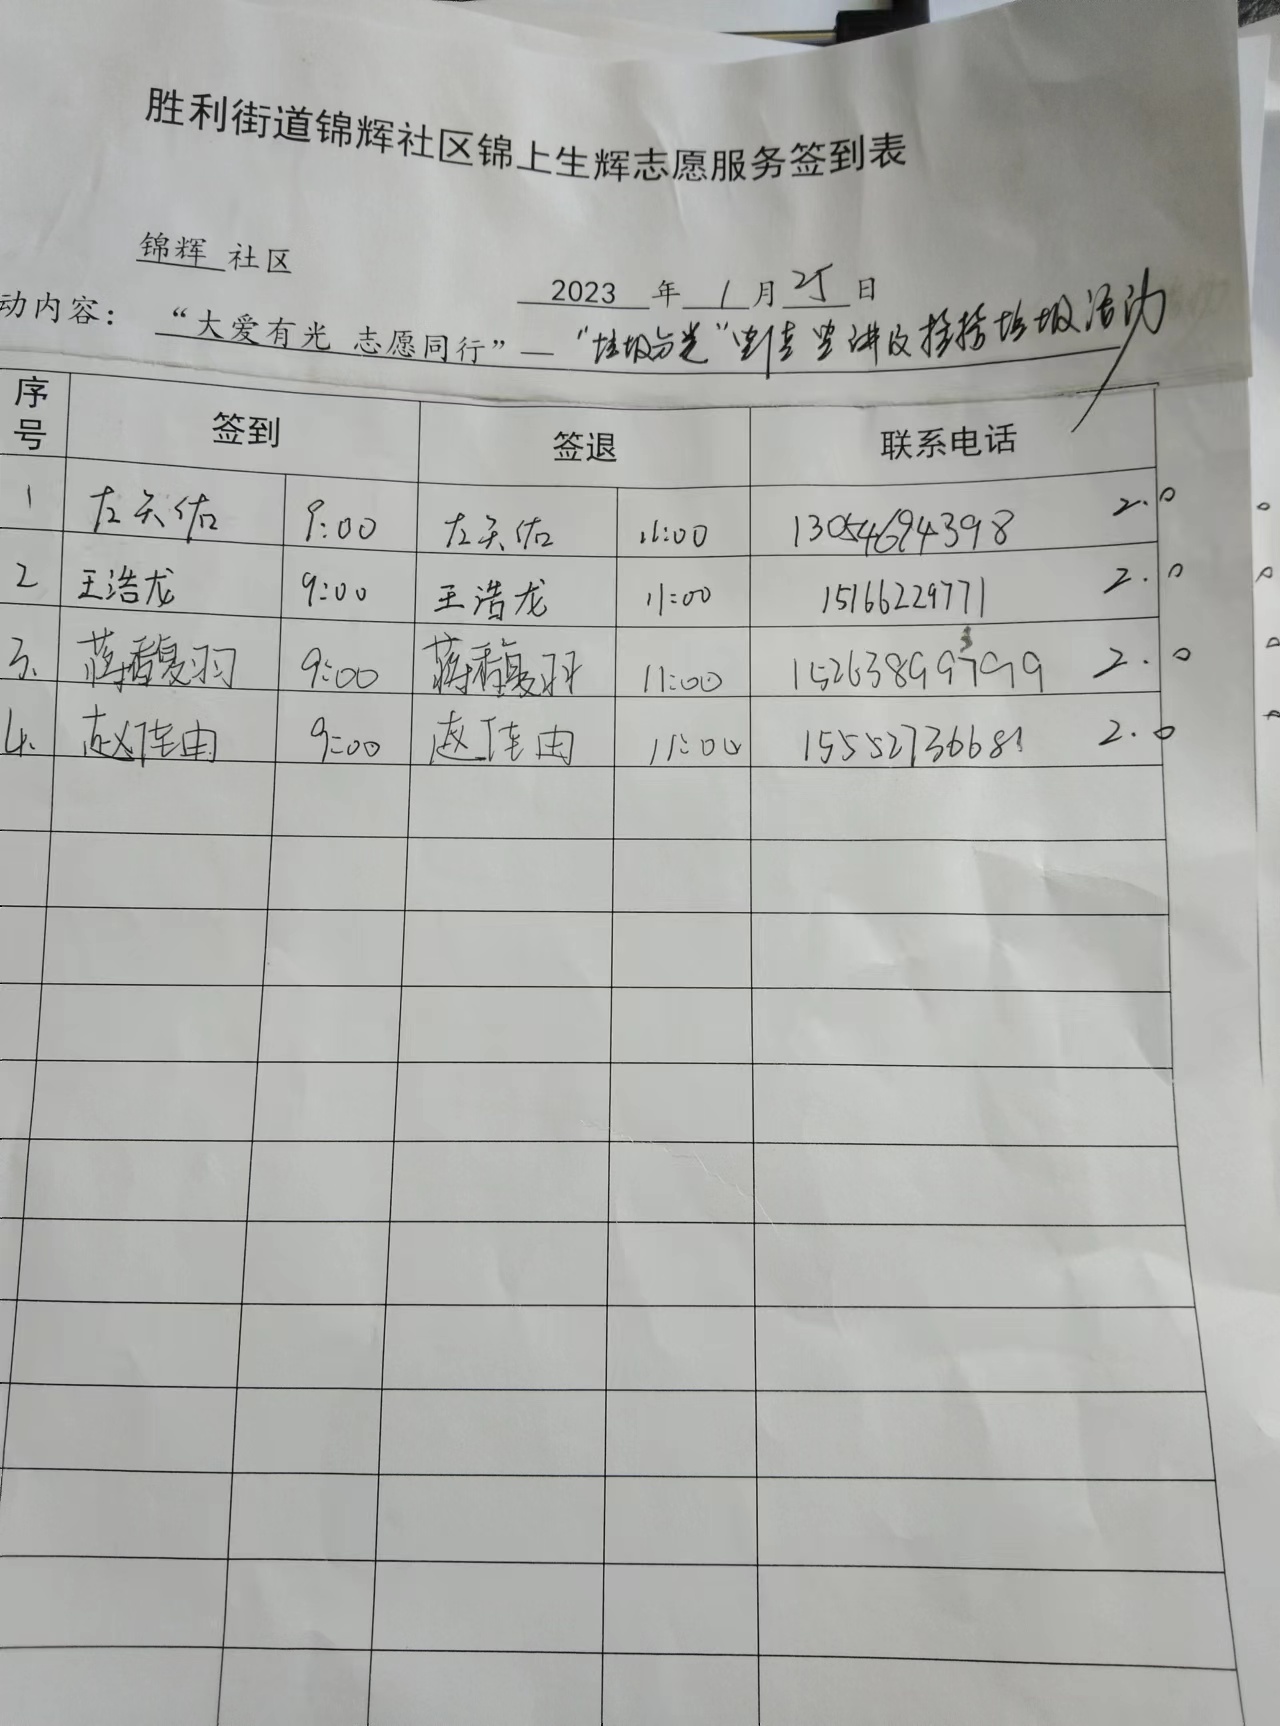 胜利街道锦辉社区锦上生辉志愿服务签到表
锦辉 社区
2023 年 1 月 25 日
动内容： “大爱有光 志愿同行”— “垃圾分类” 讲及捡拾垃圾活动
序号 签到 签退 联系电话
1 左天佑 9:00 左天佑 11:00 13054694398 2.0
2 王浩龙 9:00 王浩龙 11:00 15166229771 2.0
3. 蒋馥羽 9:00 蒋馥羽 11:00 2.0
4. 赵佳由 9:00 赵佳由 11:00 15552736681 2.0